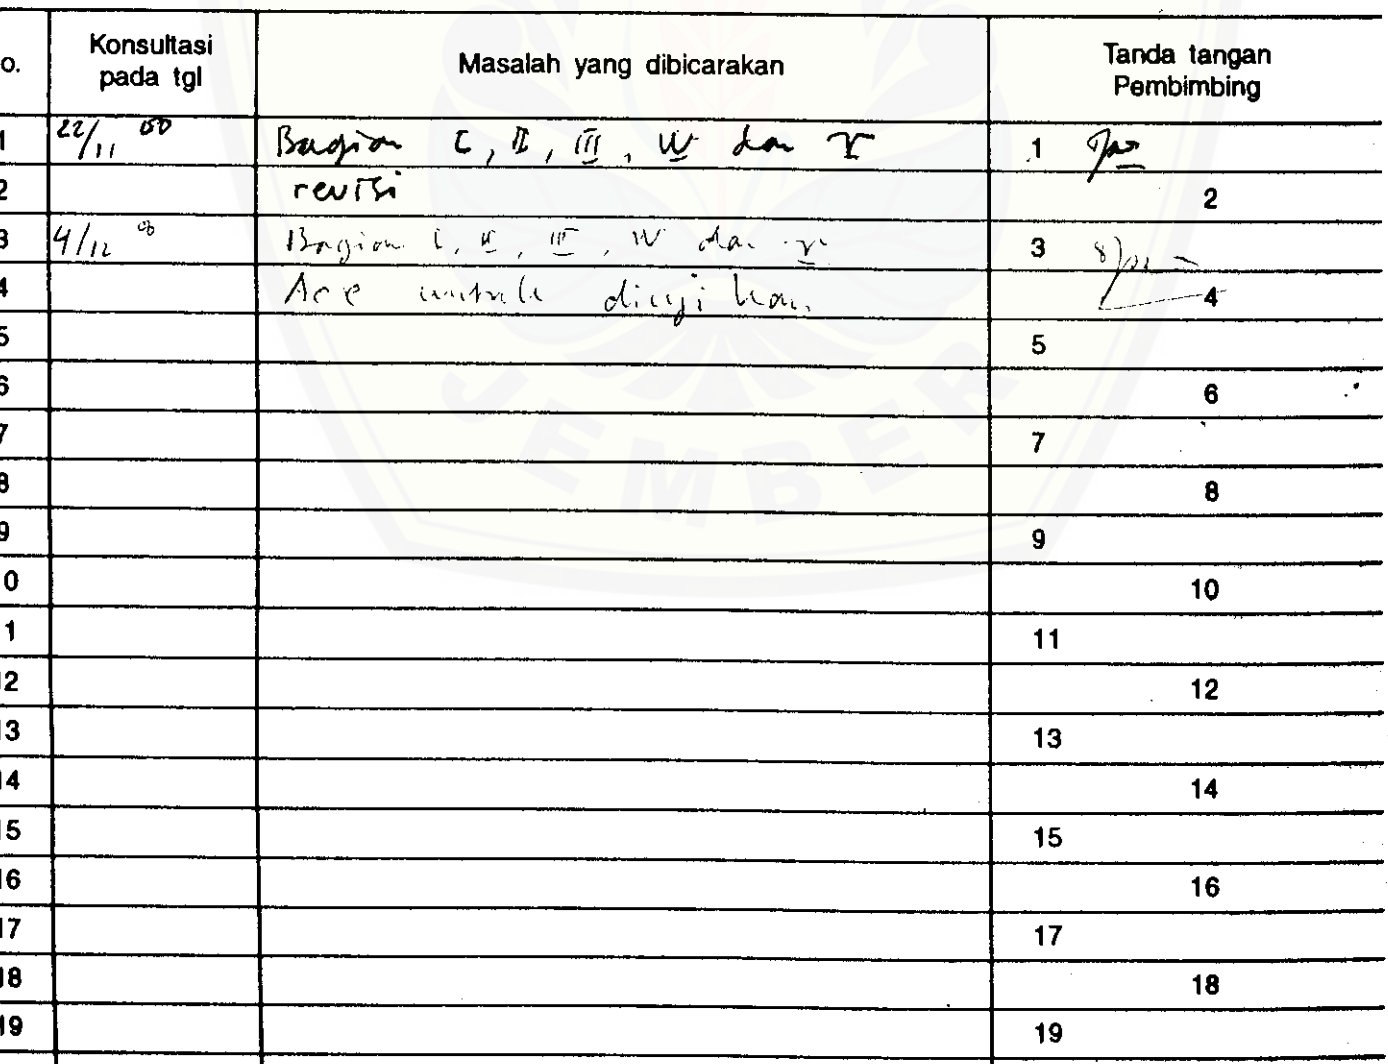 o. Konsultasi pada tgl Masalah yang dibicarakan Tanda tangan Pembimbing
1 22/11 00 Bagian I, II, III, IV dan V 1
2 revisi 2
3 4/12 00 Bagian I, II, III, IV dan V 3
4 Acc untuk diujikan. 4
5 5
6 6
7 7
8 8
9 9
0 10
1 11
12 12
13 13
14 14
15 15
16 16
17 17
18 18
19 19
JEMBER